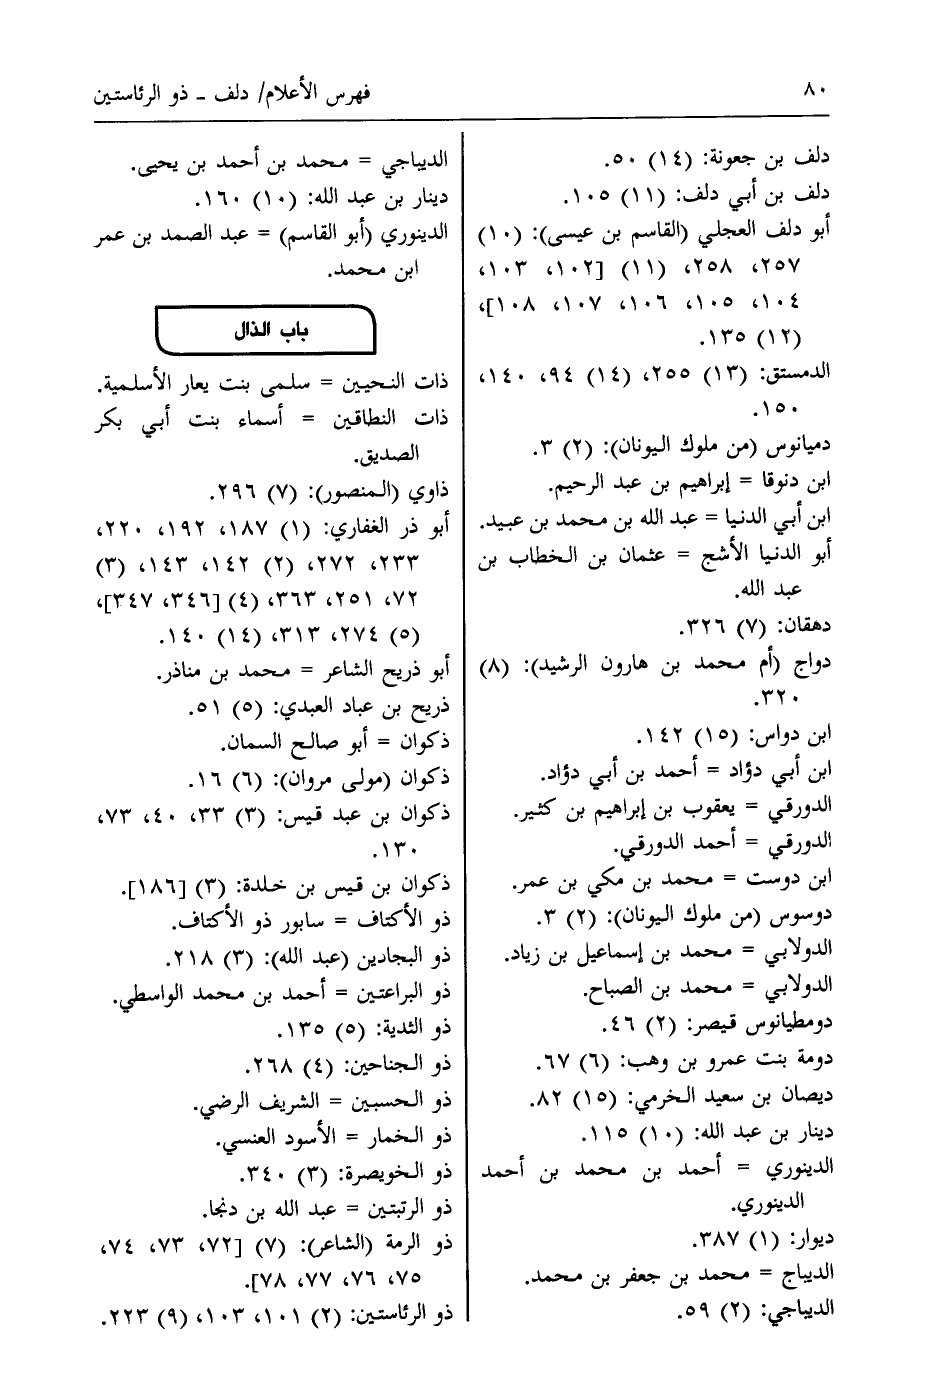 ٨٠
فهرس الأعلام/ دلف ـ ذو الرئاستين
دلف بن جعونة: (١٤) ٥٠.
دلف بن أبي دلف: (١١) ١٠٥.
أبو دلف العجلي (القاسم بن عيسى): (١٠)
٢٥٧، ٢٥٨، (١١) [١٠٢، ١٠٣،
١٠٤، ١٠٥، ١٠٦، ١٠٧، ١٠٨]،
(١٢) ١٣٥.
الدمستق: (١٣) ٢٥٥، (١٤) ٩٤، ١٤٠،
١٥٠.
دميانوس (من ملوك اليونان): (٢) ٣.
ابن دنوقا = إبراهيم بن عبد الرحيم.
ابن أبي الدنيا = عبد الله بن محمد بن عبيد.
أبو الدنيا الأشج = عثمان بن الخطاب بن
عبد الله.
دهقان: (٧) ٣٢٦.
دواج (أم محمد بن هارون الرشيد): (٨)
٣٢٠.
ابن دواس: (١٥) ١٤٢.
ابن أبي دؤاد = أحمد بن أبي دؤاد.
الدورقي = يعقوب بن إبراهيم بن كثير.
الدورقي = أحمد الدورقي.
ابن دوست = محمد بن مكي بن عمر.
دوسوس (من ملوك اليونان): (٢) ٣.
الدولابي = محمد بن إسماعيل بن زياد.
الدولابي = محمد بن الصباح.
دومطيانوس قيصر: (٢) ٤٦.
دومة بنت عمرو بن وهب: (٦) ٦٧.
ديصان بن سعيد الخرمي: (١٥) ٨٢.
دينار بن عبد الله: (١٠) ١١٥.
الدينوري = أحمد بن محمد بن أحمد
الدينوري.
ديوار: (١) ٣٨٧.
الديباج = محمد بن جعفر بن محمد.
الديباجي: (٢) ٥٩.
الديباجي = محمد بن أحمد بن يحيى.
دينار بن عبد الله: (١٠) ١٦٠.
الدينوري (أبو القاسم) = عبد الصمد بن عمر
ابن محمد.
باب الذال
ذات النحيين = سلمى بنت يعار الأسلمية.
ذات النطاقين = أسماء بنت أبي بكر
الصديق.
ذاوي (المنصور): (٧) ٢٩٦.
أبو ذر الغفاري: (١) ١٨٧، ١٩٢، ٢٢٠،
٢٣٣، ٢٧٢، (٢) ١٤٢، ١٤٣، (٣)
٧٢، ٢٥١، ٣٦٣، (٤) [٣٤٦، ٣٤٧]،
(٥) ٢٧٤، ٣١٣، (١٤) ١٤٠.
أبو ذريح الشاعر = محمد بن مناذر.
ذريح بن عباد العبدي: (٥) ٥١.
ذكوان = أبو صالح السمان.
ذكوان (مولى مروان): (٦) ١٦.
ذكوان بن عبد قيس: (٣) ٣٣، ٤٠، ٧٣،
١٣٠.
ذكوان بن قيس بن خلدة: (٣) [١٨٦].
ذو الأكتاف = سابور ذو الأكتاف.
ذو البجادين (عبد الله): (٣) ٢١٨.
ذو البراعتين = أحمد بن محمد الواسطي.
ذو الثدية: (٥) ١٣٥.
ذو الجناحين: (٤) ٢٦٨.
ذو الحسبين = الشريف الرضي.
ذو الخمار = الأسود العنسي.
ذو الخويصرة: (٣) ٣٤٠.
ذو الرتبتين = عبد الله بن دنجا.
ذو الرمة (الشاعر): (٧) [٧٢، ٧٣، ٧٤،
٧٥، ٧٦، ٧٧، ٧٨].
ذو الرئاستين: (٢) ١٠١، ١٠٣، (٩) ٢٢٣.